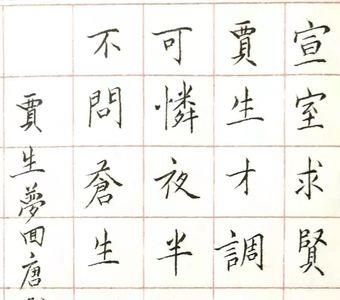 宣室求賢
賈生才調
可憐夜半
不問蒼生
賈生夢回唐